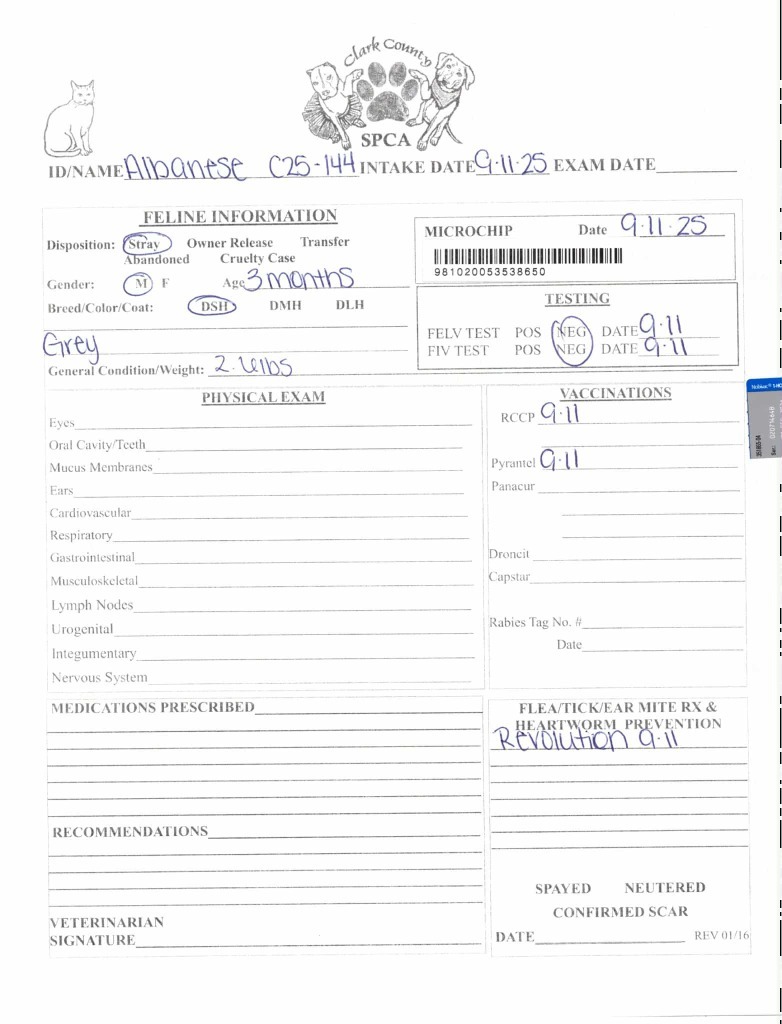 Clark County
SPCA
ID/NAME Albanese C25-144 INTAKE DATE 9-11-25 EXAM DATE
FELINE INFORMATION
Disposition: Stray Owner Release Transfer
Abandoned Cruelty Case
Gender: M F Age 3 months
Breed/Color/Coat: DSH DMH DLH
Grey
General Condition/Weight: 2.4lbs
MICROCHIP Date 9-11-25
981020053538650
TESTING
FELV TEST POS NEG DATE 9-11
FIV TEST POS NEG DATE 9-11
PHYSICAL EXAM
Eyes
Oral Cavity/Teeth
Mucus Membranes
Ears
Cardiovascular
Respiratory
Gastrointestinal
Musculoskeletal
Lymph Nodes
Urogenital
Integumentary
Nervous System
VACCINATIONS
RCCP 9-11
Pyrantel 9-11
Panacur
Droncit
Capstar
Rabies Tag No. #
Date
MEDICATIONS PRESCRIBED
RECOMMENDATIONS
VETERINARIAN
SIGNATURE
FLEA/TICK/EAR MITE RX &
HEARTWORM PREVENTION
Revolution 9-11
SPAYED NEUTERED
CONFIRMED SCAR
DATE REV 01/16